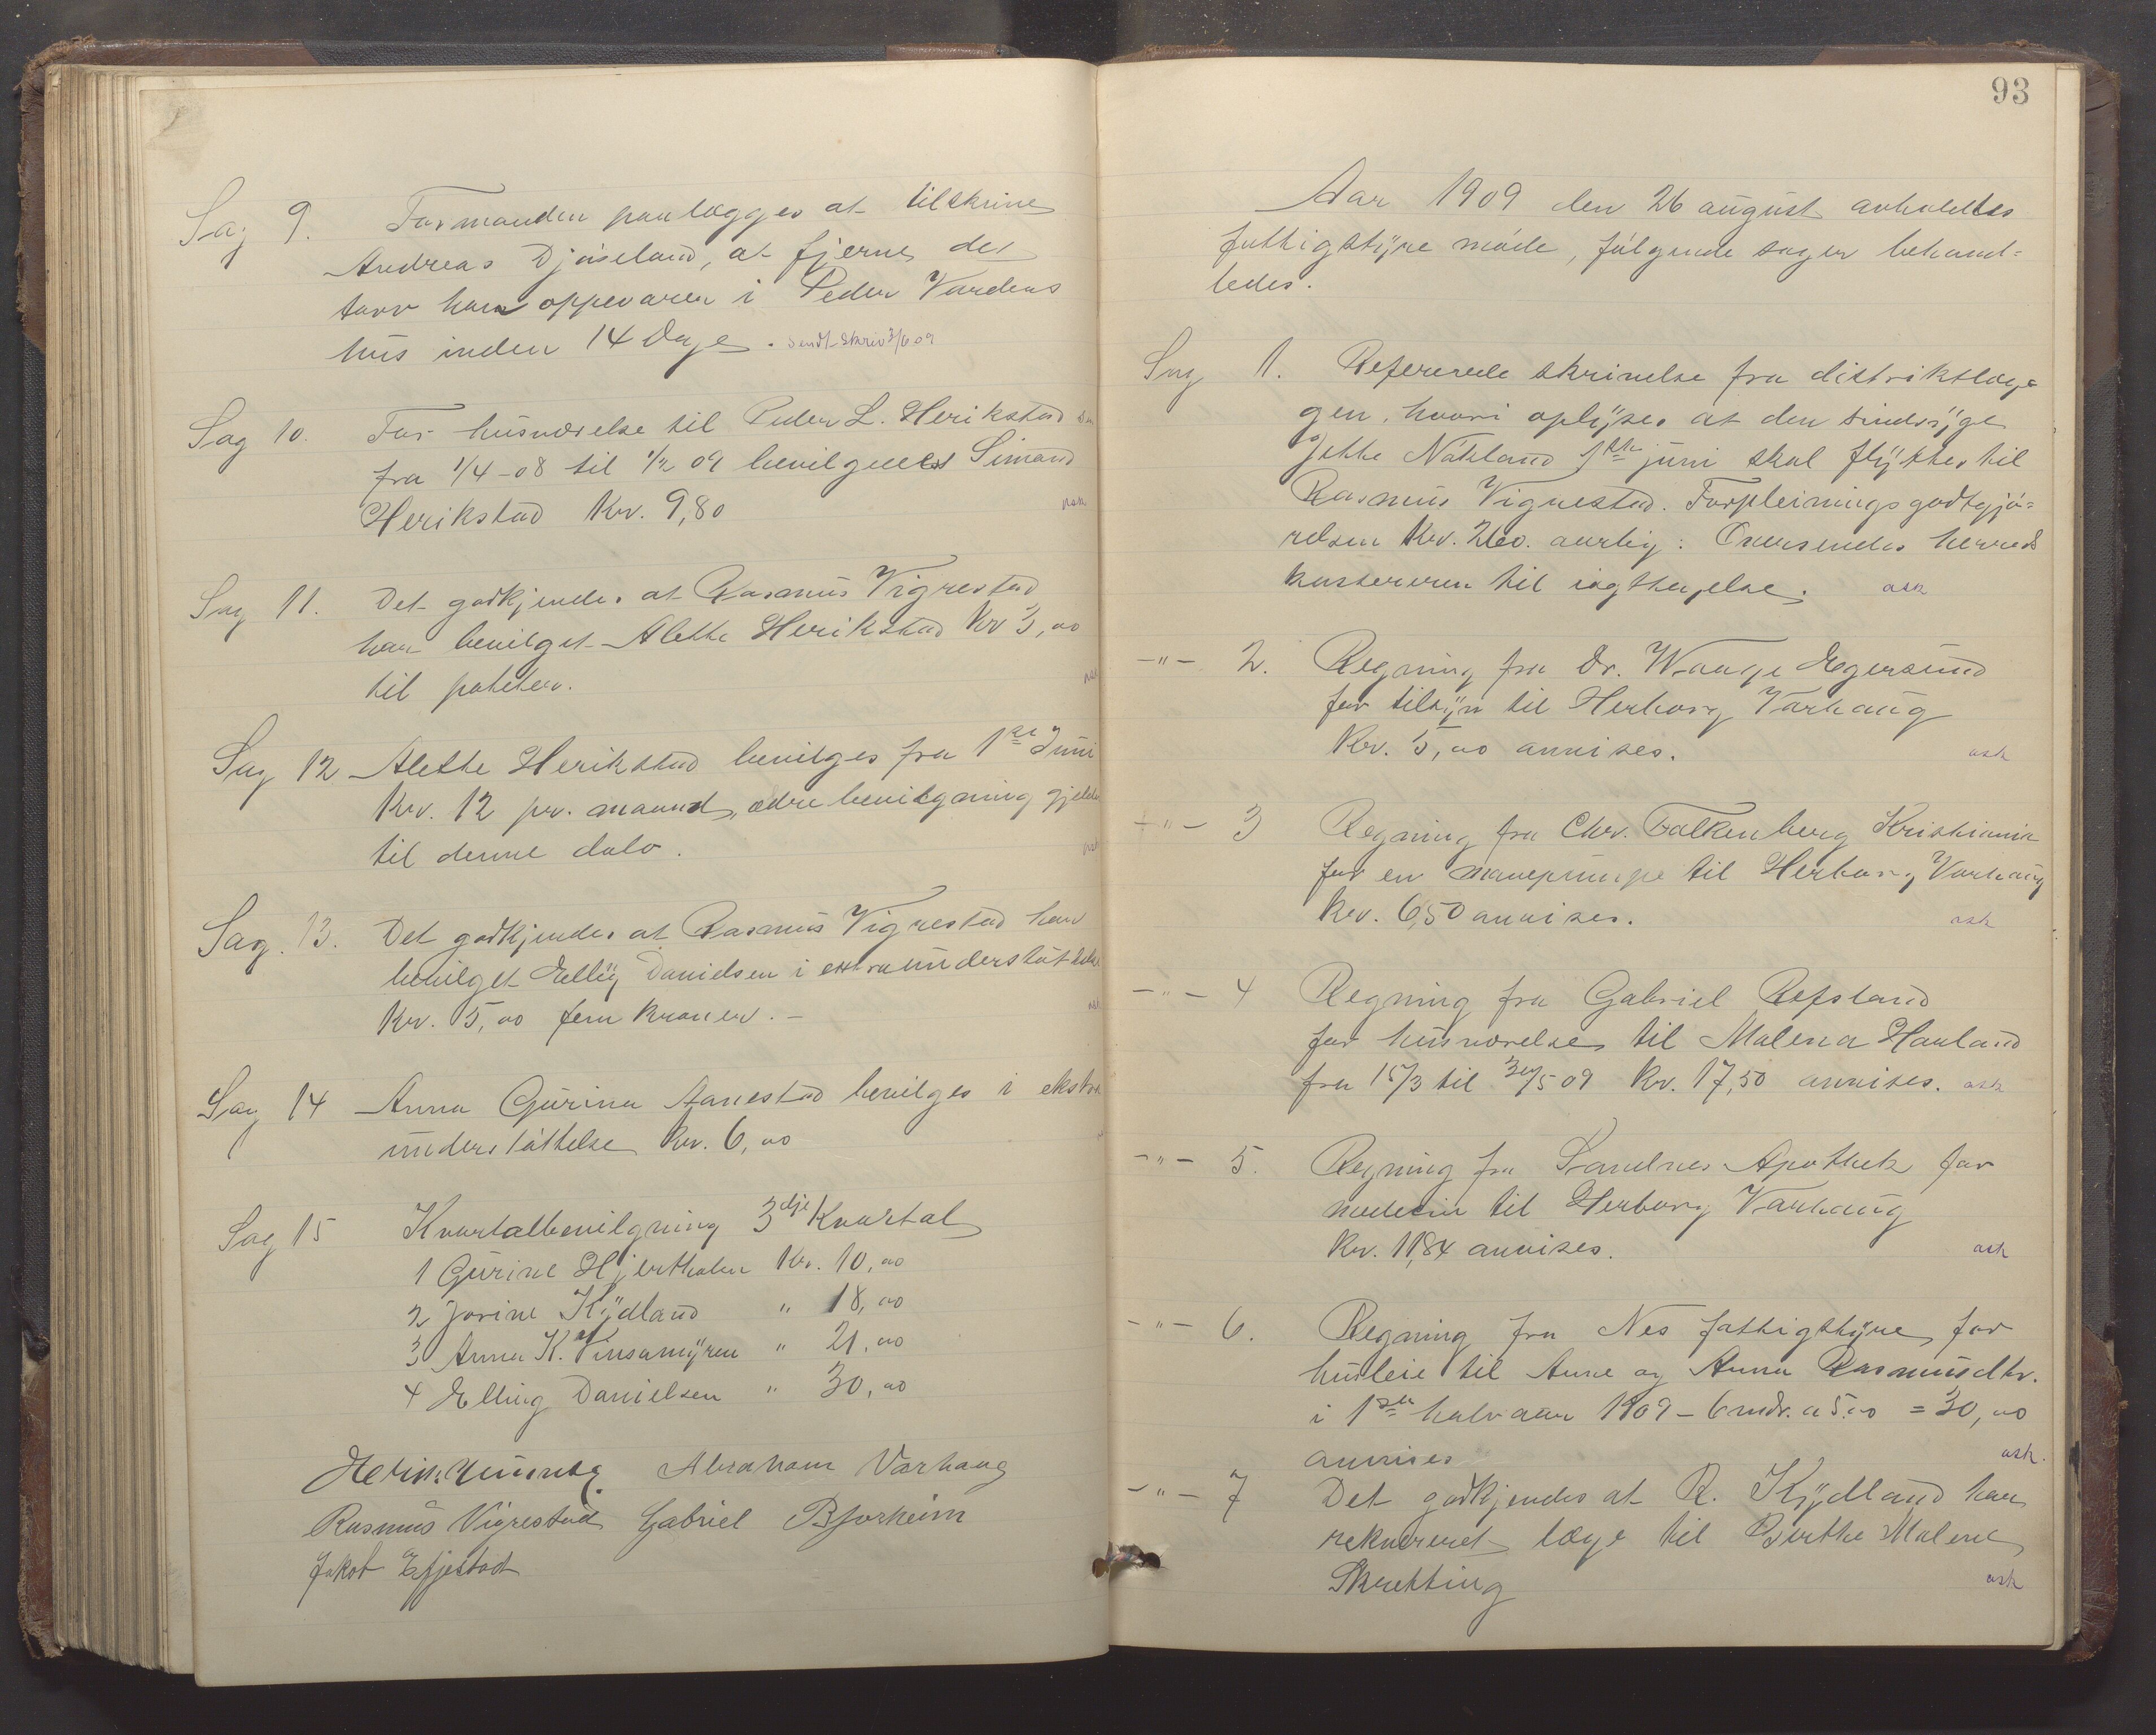 Sag 9. Formanden paalægges at tilskrive
Andreas Djøseland, at fjerne det
torv han oppevarer i Peder Vardens
hus inden 14 Dage. sendt skriv 3/6 09
Sag 10. For husværelse til Peder L. Herikstad
fra 1/4-08 til 1/2 09 bevilgedes Simand
Herikstad Kr. 9,80 ask
Sag 11. Det godkjendes at Rasmus Vigrestad
har bevilget Alethe Herikstad Kr 5,00
til poteter. ask
Sag 12 Alethe Herikstad bevilges fra 1ste Juni
Kr. 12 pr. maaned, ældre bevilgning gjelder
til denne dato. ask
Sag. 13. Det godkjendes at Rasmus Vigrestad har
bevilget Elling Danielsen i extraunderstøttelse
Kr. 5,00 fem kroner. - ask
Sag 14 Anna Gurina Aanestad bevilges i ekstra
understøttelse Kr. 6,00
Sag 15 Kvartalbevilgning 3dje Kvartal
1 Gurine Hjertholm Kr. 10,00
2 Jorine Kydland " 18,00
3 Anna K. Vinsamyren " 21,00
4 Elling Danielsen " 30,00
Abraham Varhaug
Rasmus Vigrestad Gabriel Bjorheim
Jakob Efjestad
93
Aar 1909 den 26 august avholdtes
fattigstyre møde, følgende sager behand-
ledes.
Sag 1. Refererede skrivelse fra distriktslæge
gen, hvori oplyses at den sindsyge
Jette Nåtland 1ste juni skal flyttes til
Rasmus Vigrestad. Forpleiningsgodtgjø-
relsen Kr. 260. aarlig: Oversendes herreds
kassereren til iagttagelse. ask
-"- 2. Regning fra Dr. Waage Egersund
for tilsyn til Herborg Varhaug
Kr. 5,00 anvises. ask
-"- 3 Regning fra Chr. Falkenberg Kristiania
for en mavepumpe til Herborg Varhaug
Kr. 6,50 anvises. ask
-"- 4 Regning fra Gabriel Refsland
for husværelse til Malena Hauland
fra 15/3 til 30/5 09 Kr. 17,50 anvises. ask
-"- 5. Regning fra Sandnes Apothek for
medecin til Herborg Varhaug
Kr. 11,84 anvises. ask
-"- 6. Regning fra Nes fattigstyre for
husleie til Anne og Anna Rasmusdtr.
i 1ste halvaar 1909 - 6 mdr. a 5.00 = 30,00
anvises ask.
-"- 7 Det godkjendes at R. Kydland har
rekvireret læge til Berthe Malene
Skretting ask